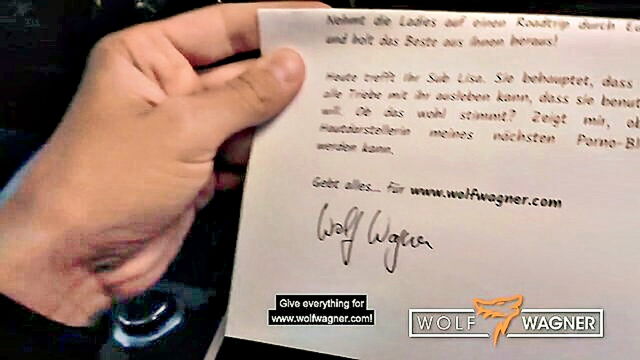 Nehmt die Ladies auf einen Roadtrip durch
und holt das Beste aus ihnen heraus!
Heute trefft ihr Sub Lisa. Sie behauptet, dass
alle Triebe mit ihr ausleben kann, dass sie
will. Ob das wohl stimmt? Zeigt mir,
Hautdarstellerin meines nächsten
werden kann.
Gebt alles... für www.wolfwagner.com
Wolf Wagner
Give everything for
www.wolfwagner.com!
WOLF WAGNER